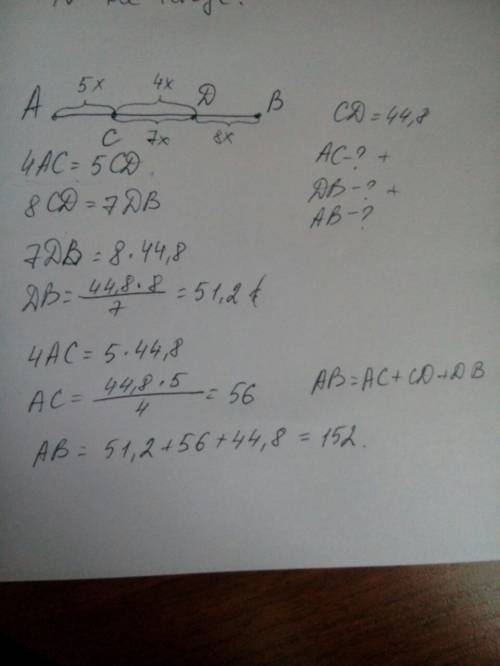 5x 4x
A C D B
7x 8x
CD = 44,8
AC - ? +
DB - ? +
AB - ?
4AC = 5CD.
8CD = 7DB
7DB = 8 · 44,8
DB = 44,8 · 8 / 7 = 51,2
4AC = 5 · 44,8
AC = 44,8 · 5 / 4 = 56
AB = AC + CD + DB
AB = 51,2 + 56 + 44,8 = 152.